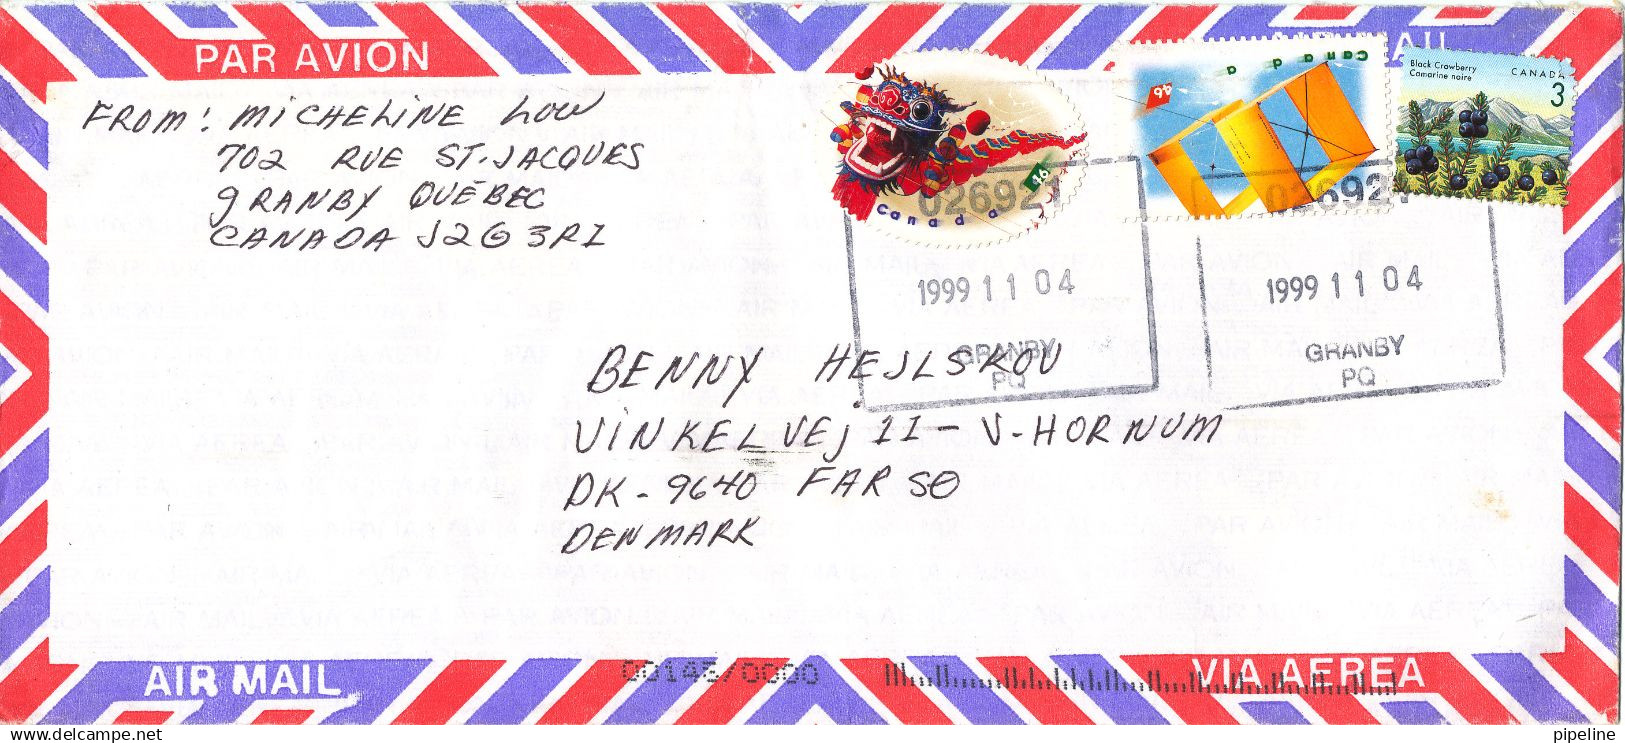 PAR AVION
FROM: MICHELINE LOW
702 RUE ST-JACQUES
GRANBY QUÉBEC
CANADA J2G 3R1
Canada
46
Canada
46
Black Crowberry
Camarine noire
CANADA
3
026921
026921
1999 11 04
1999 11 04
GRANBY
PQ
GRANBY
PQ
BENNY HEJLSKOV
VINKELVEJ 11 - V-HORNUM
DK-9640 FARSØ
DENMARK
00143/0000
AIR MAIL
VIA AEREA
pipeline